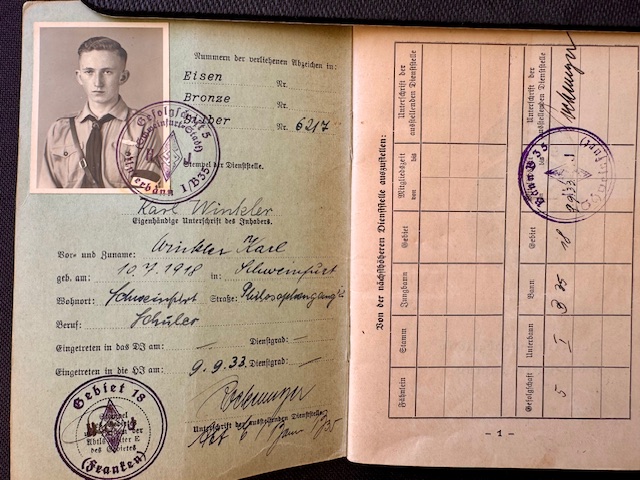 Nummern der verliehenen Abzeichen in:
Eisen Nr.
Bronze Nr.
Silber Nr. 6217
Gefolgschaft 5
(Schweinfurt-Stadt)
Unterbann I/B35
Stempel der Dienststelle.
Karl Winkler
Eigenhändige Unterschrift des Inhabers.
Vor- und Zuname: Winkler Karl
geb. am: 10.7.1918 in: Schweinfurt
Wohnort: Schweinfurt Straße:
Beruf: Schüler
Eingetreten in das DJ am: — Dienstgrad: —
Eingetreten in die HJ am: 9.9.33. Dienstgrad: —
Unterschrift der ausstellenden Dienststelle
Gebiet 18
Stempel
des Gebietes
(Franken)
Von der nächsthöheren Dienststelle auszustellen:
Fähnlein
Stamm
Jungbann
Gebiet
Mitgliedszeit von bis
Unterschrift der ausstellenden Dienststelle
Gefolgschaft
5
Unterbann
I
Bann
B 35
Gebiet
18
bis
9.9.33
Unterschrift der ausstellenden Dienststelle
Bann B 35
- 1 -